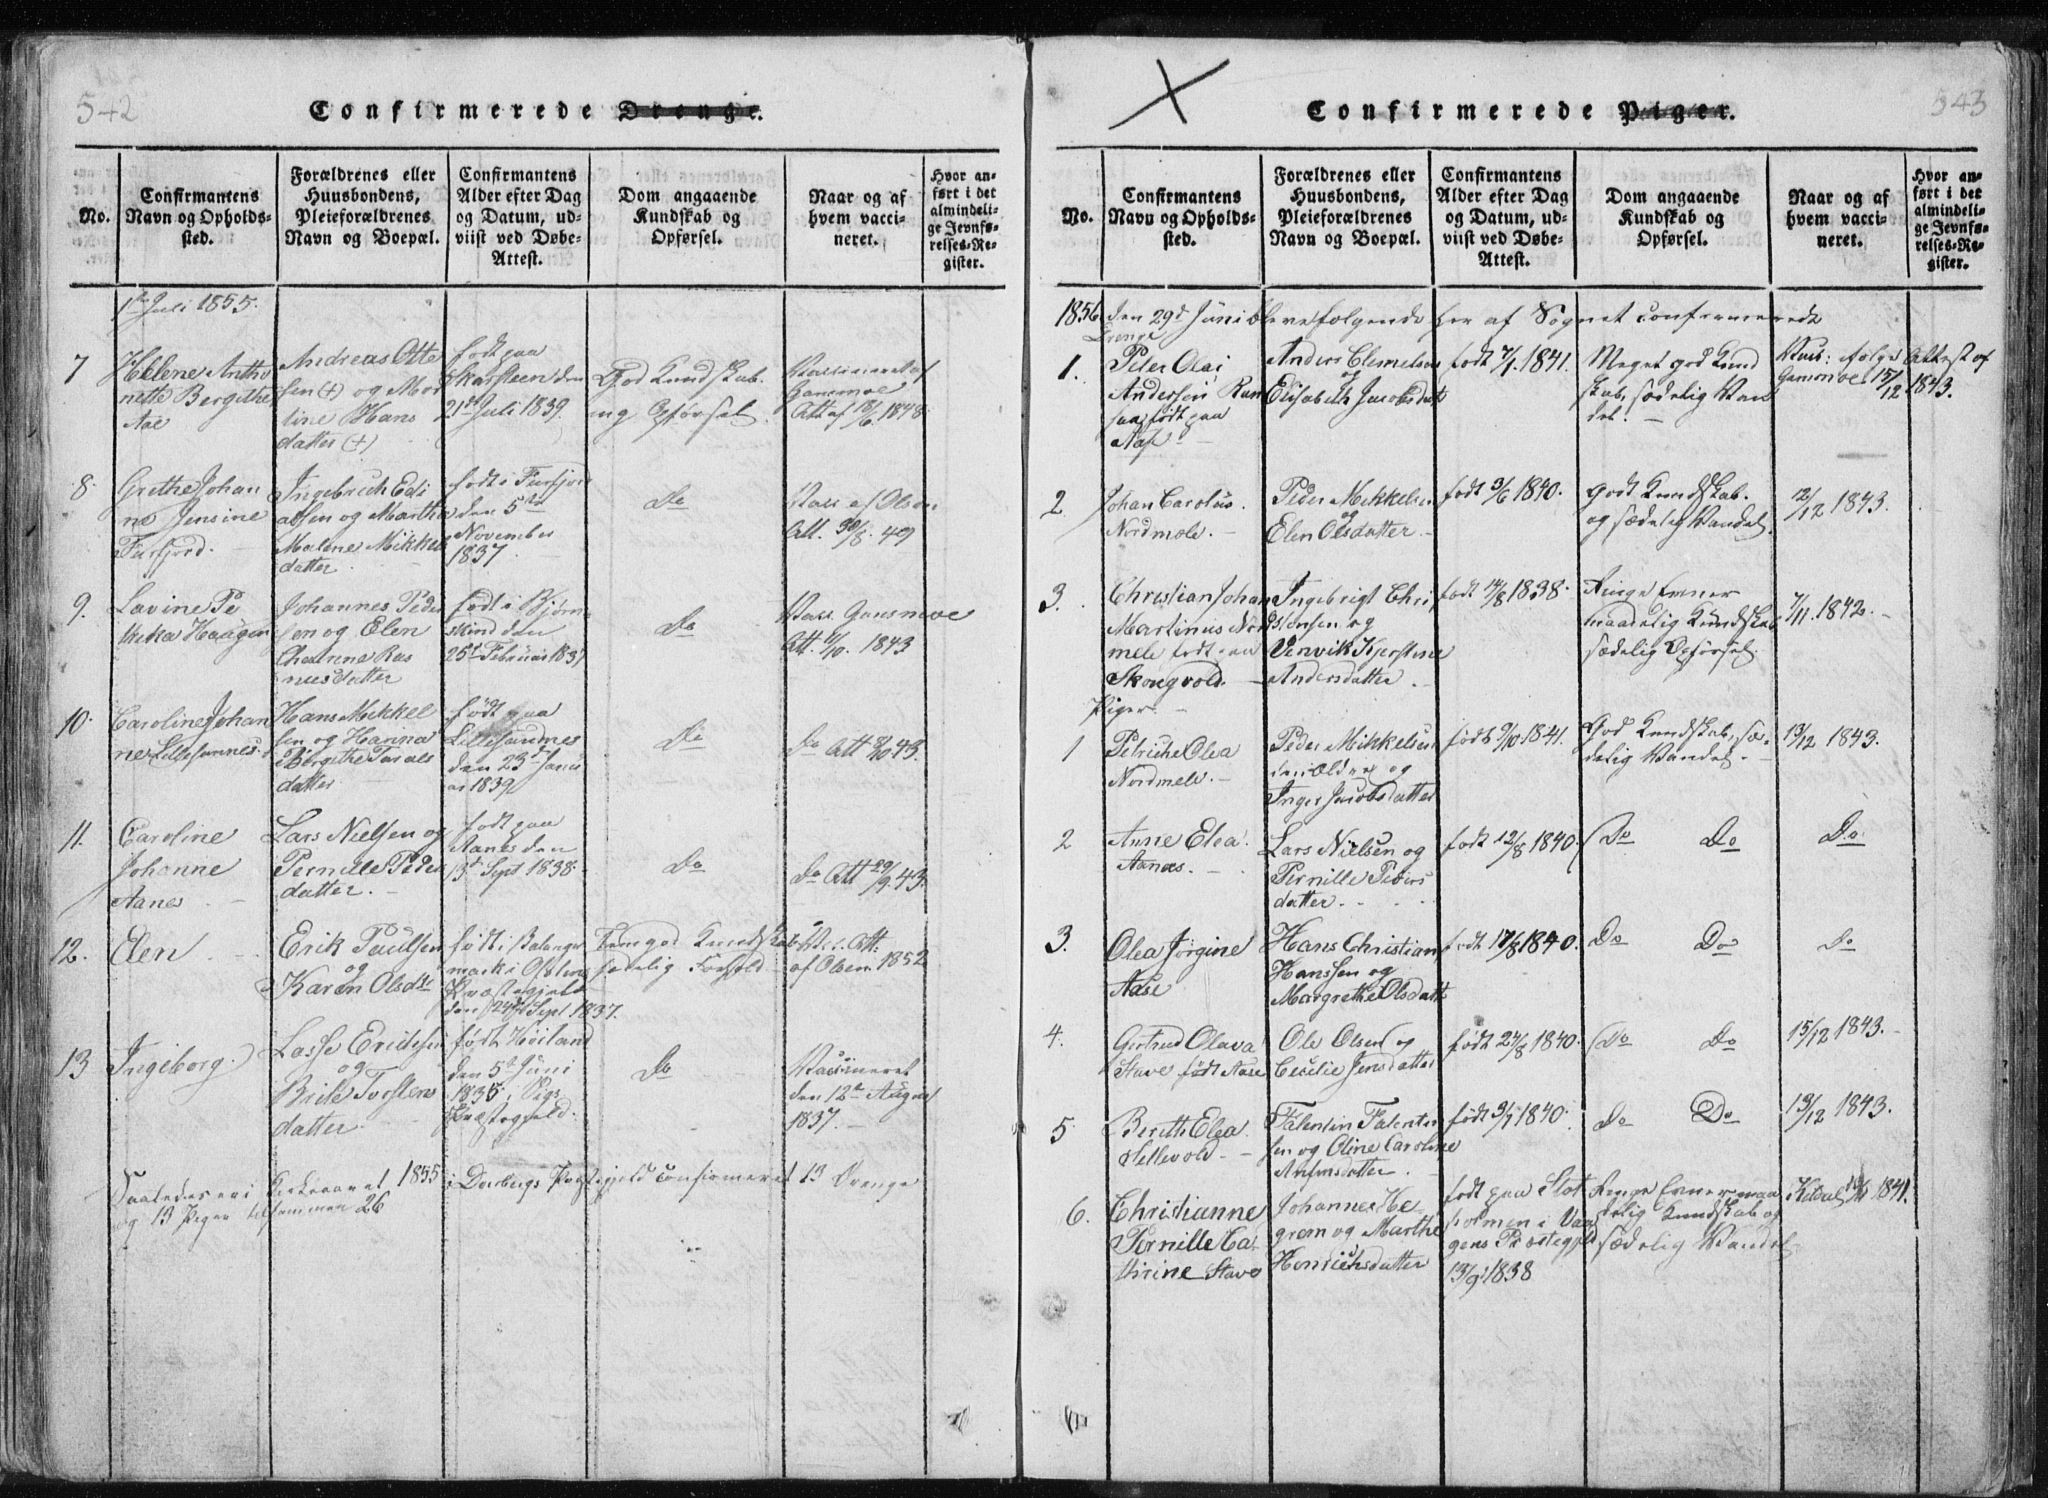 542
Confirmerede Drenge.
No.
Confirmantens
Navn og Opholds-
sted.
Forældrenes eller
Huusbondens,
Pleieforældrenes
Navn og Boepæl.
Confirmantens
Alder efter Dag
og Datum, ud-
viist ved Døbe-
Attest.
Dom angaaende
Kundskab og
Opførsel.
Naar og af
hvem vacci-
neret.
Hvor an-
ført i det
almindeli-
ge Jevnfø-
relses-Re-
gister.
Juli 1855.
7
Helene Antho
nette Bergithe
Andreas Otte
sen (+) og
line Hans
datter (+)
født paa
Skarsteen den
21de Juli 1839
God Kundskab
og Opførsel.
Vaccineret af
Att af 18/6 1848
8.
Grethe Johan
ne Jensine
Furfjord.
Ingebrick Edi
assen og Martha
Malene Mikkels
datter
født i Furfjord
den 5te
November
1837.
Do
Vacc af Olsen
Att. 30/8. 49
9.
Lavine Pe
Haagen
Johannes Peder
sen og Elen
Channa Ras
musdatter
født i Bjørn
skind den
25de Februar 1837
Do
Vacc.
Att. 1843
10.
Caroline Johan
ne Lillesannes.
Hans Mikkel
sen og Hanna
Bergithe
datter
født paa
Lillesandnes
den 23de Janu
ar 1839
Do
Do Att 43.
11.
Caroline
Johanne
Aanes
Lars Nielsen og
Pernille Peder
datter.
født paa
Aanes den
Sept 1838.
Do
Do Att 29/9 43.
12.
Elen
Erik Paulsen
og
Karen Olsdtr
født i Balanger
mark i Ofoten
Præstegjeld
den 24de Sept 1837.
Kundskab
sædelig Forhold
Att:
af Olsen 1852
13
Ingeborg.
Lasse Ericksen
og
Brite Torstens
datter
født Høiland
den 5te Juni
1835, Vigs
Præstegjeld.
Do
Vaccineret
den 12te August
1837.
Saaledes er i Kirkeaaret 1855 i Dverbergs Præstegjeld confirmeret 13 Drenge
og 13 Piger tilsammen 26
543
Confirmerede Piger.
No.
Confirmantens
Navn og Opholds-
sted.
Forældrenes eller
Huusbondens,
Pleieforældrenes
Navn og Boepæl.
Confirmantens
Alder efter Dag
og Datum, ud-
viist ved Døbe-
Attest.
Dom angaaende
Kundskab og
Opførsel.
Naar og af
hvem vacci-
neret.
Hvor an-
ført i det
almindeli-
ge Jevnfø-
relses-Re-
gister.
1856 den 29de Juni bleve følgende her af Sognet confirmerede
Drenge
1.
Peter Olai
Andersen Ram
saa, født paa
Aase
Anders Clemetsen
og
Elisabeth Jacobsdatt
født 7/1 1841.
Meget god Kund
skab, sædelig Van
del.
Vacc: følge Attest af
15/12 1843.
2
Johan Carolus
Nordmele.
Peder Mikkelsen
og
Elen Olsdatter
født 3/6 1840.
godt Kundskab.
og sædelig Vandel.
12/12 1843.
3.
Christian Johan
Martinus Nord
mele født paa
Skougvold.
Ingebrigt Chri
stensen og
Venvik Kjerstine
Andersdatter
født 14/8 1838.
Kundskab
sædelig Opførsel.
7/11. 1842.
Piger.
1
Petriche Olea
Nordmele.
Peder Mikkelsen
den Ældre og
Inger Jacobsdatter
født 9/10 1841.
God Kundskab, sæ-
delig Vandel.
13/12 1843.
2
Anne Elea.
Aanes.
Lars Nielsen og
Pernille Peders
datter.
født 12/8 1840.
Do Do
Do
3.
Olea Jørgine
Aase
Hans Christian
Hanssen og
Margrethe Olsdatt
født 17/8 1840.
Do Do
Do
4.
Gertrud Olava
Stave født Aase
Ole Olsen og
Cecilie Jensdatter
født 24/8 1840.
Do Do
15/12 1843.
5
Berith Elea.
Sellevold
Falentin Falentin
sen og Oline Caroline
Antonsdatter.
født 3/1 1840.
Do Do
13/12 1843.
6.
Christianne
Pernille Ca
thrine Stave
Johannes He
grem og Marthe
Henrichsdatter
født paa Slot
holmen i Vaa
gens Præstegjeld
13/9 1838
Kundskab og
sædelig Vandel.
1841.